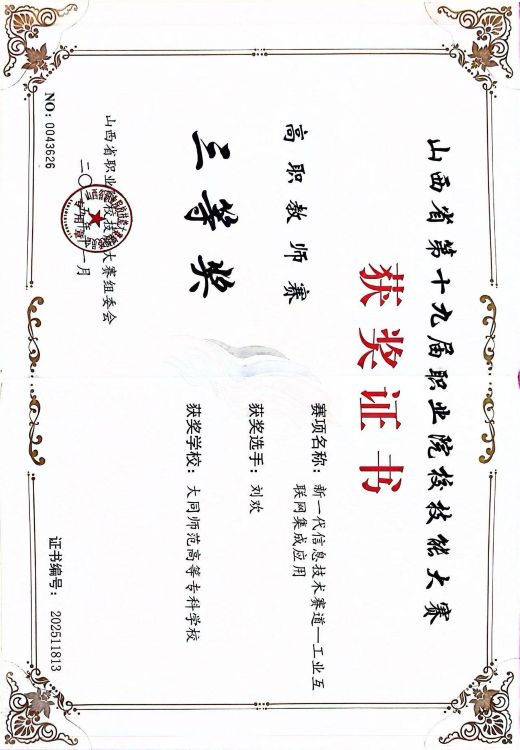 山西省第十九届职业院校技能大赛
获奖证书
高职教师赛
赛项名称：新一代信息技术赛道—工业互
联网集成应用
三等奖
获奖选手：刘欢
获奖学校：大同师范高等专科学校
山西省职业院校技能大赛组委会
二〇二五年十一月
专用章
NO：0043626
证书编号：202511813